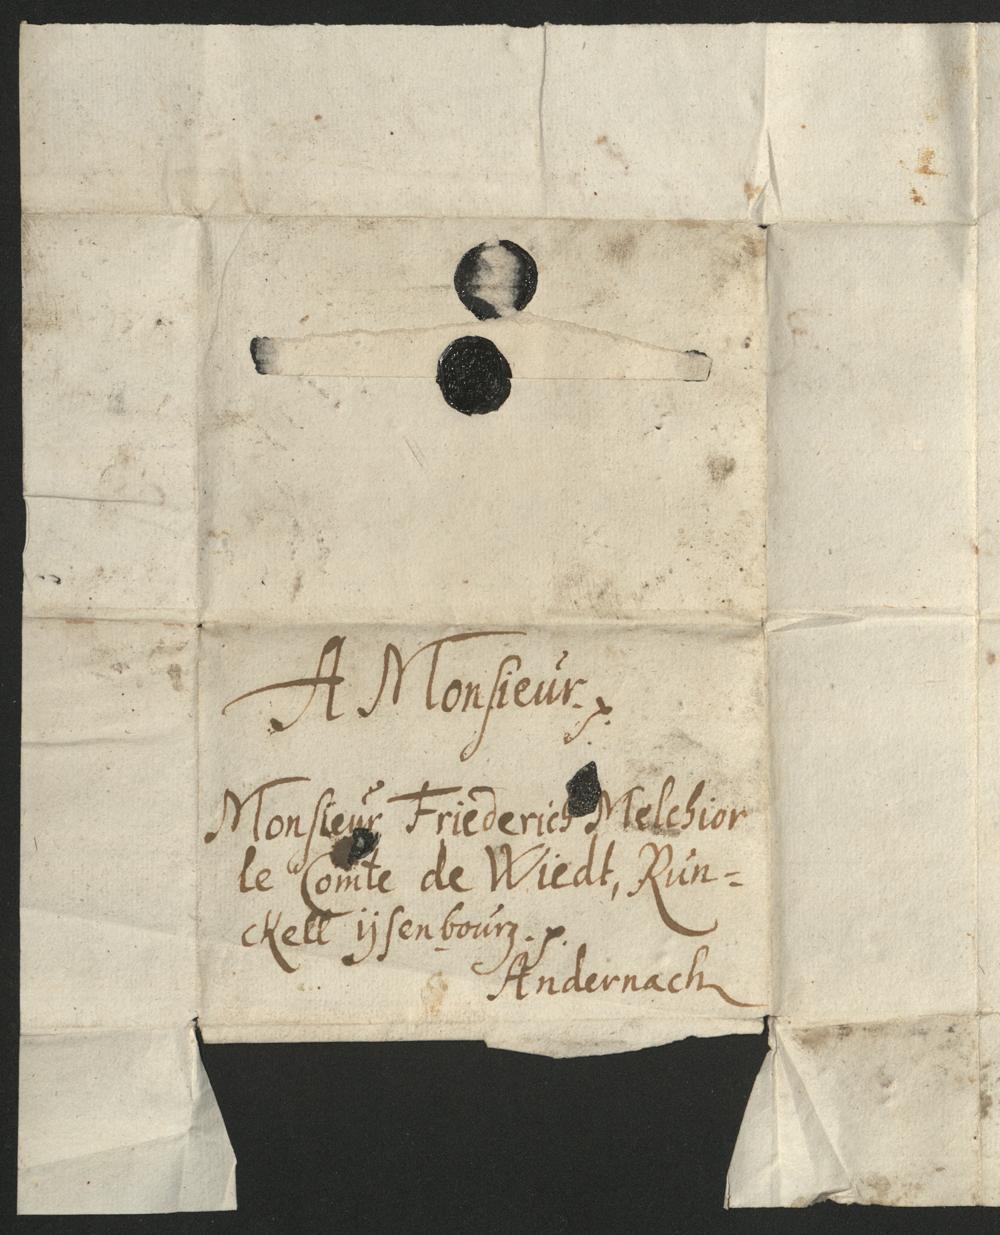 A Monsieur.
Monsieur Friederich Melchior
le Comte de Wiedt, Run=
ckell ijsenbourg.
Andernach